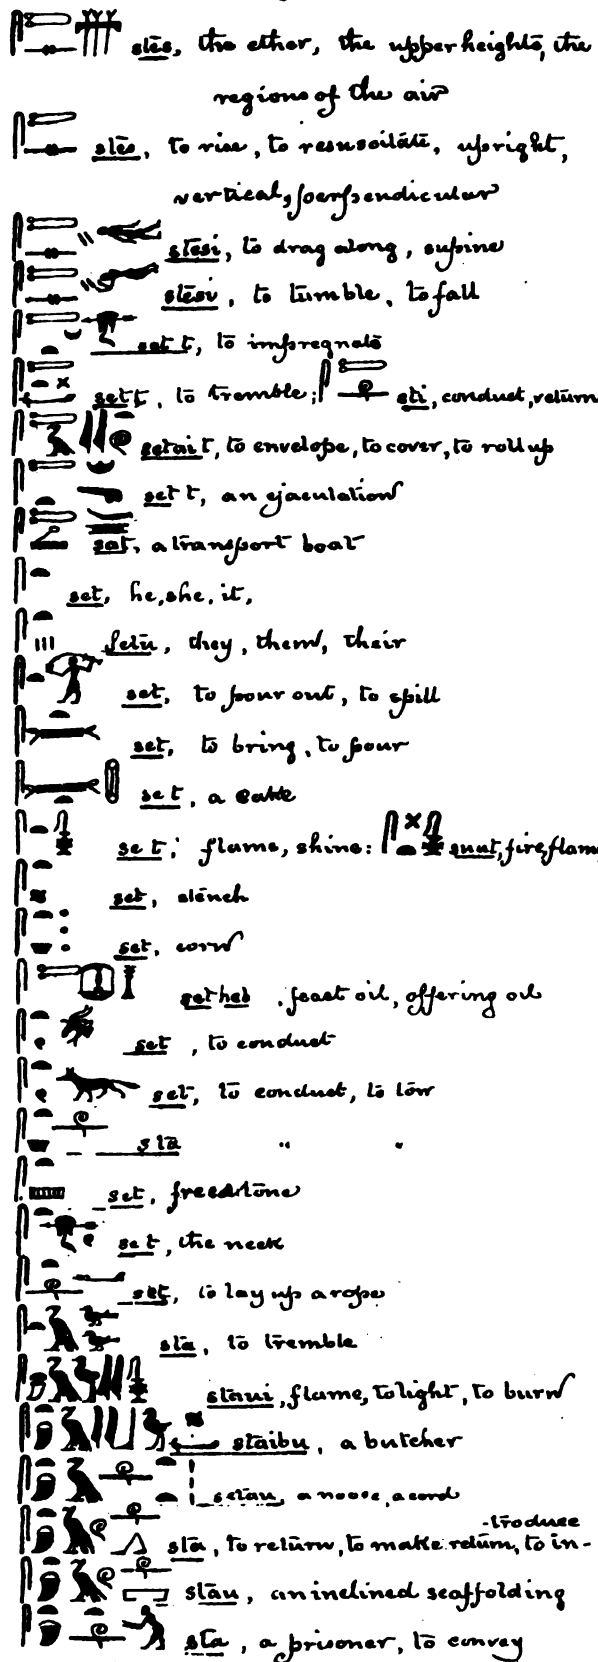 stes, the ether, the upper heights, the
regions of the air
stes, to rise, to resussitate, upright,
vertical, perpendicular
stesi, to drag along, supine
stesi, to tumble, to fall
set t, to impregnate
set t, to tremble; sti, conduct, return
setait, to envelope, to cover, to roll up
set t, an ejaculation
sat, a transport boat
set, he, she, it,
setu, they, them, their
set, to pour out, to spill
set, to bring, to pour
set, a cake
set; flame, shine: snut, fire, flam
set, stench
set, corn
set heb, feast oil, offering oil
set, to conduct
set, to conduct, to tow
sta " "
set, freestone
set, the neck
set, to lay up a rope
sta, to tremble
staui, flame, to light, to burn
staibu, a butcher
setau, a noose, a cord
-troduce
sta, to return, to make return, to in-
stau, an inclined scaffolding
sta, a prisoner, to convey